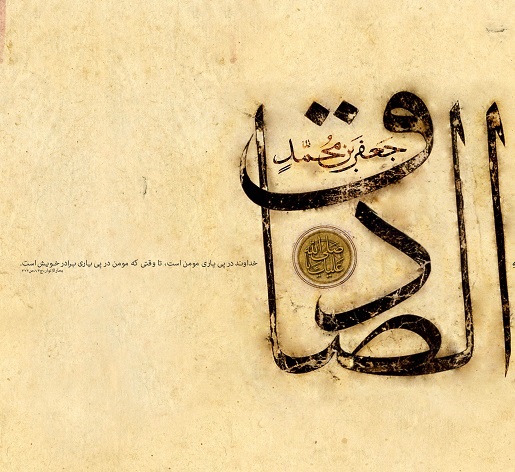 الصادق
جعفر بن محمد
صلی الله علیک
خداوند در پی یاری مومن است، تا وقتی که مومن در پی یاری برادر خویش است.